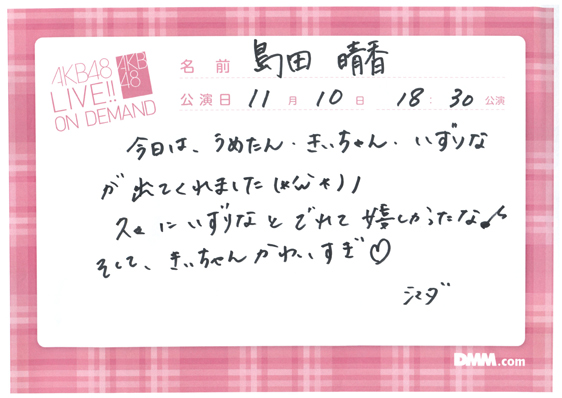 AKB48
LIVE!!
ON DEMAND
AKB
48
名前 島田 晴香
公演日 11月 10日 18:30 公演
今日は、うめたん・きぃちゃん・いずりな
が出てくれました(*^^*)ノ
久々にいずりなとでれて嬉しかったな♪
そして、きぃちゃんかわいすぎ♡
シマダ
DMM.com